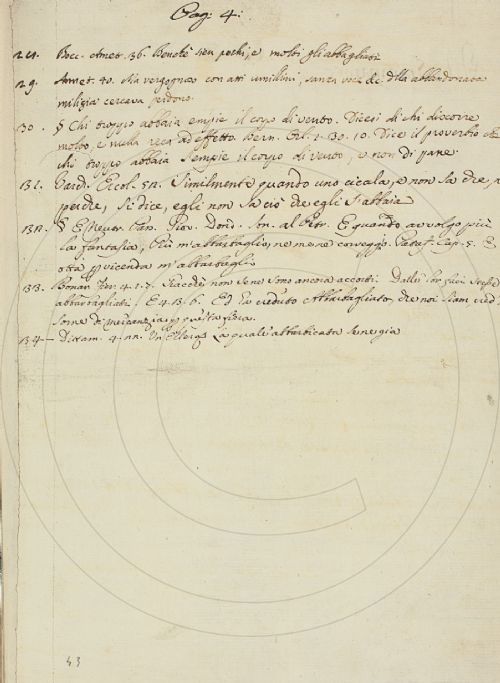 Pag: 4:
Bocc. Amet. 36. Benchè sien pochi, e molti gli abbigliati
29. Amet. 40. Sia vergognoso con atti umilissimi, sanza voce &c. della abbandonata
milizia cercava perdono.
130. § Chi troppo abbaia empie il corpo di vento. Dicesi di chi discorre
molto, e nulla reca ad effetto. Bern. Orl. 1. 30. 10. Dice il proverbio che
chi troppo abbaia S'empie il corpo di vento, e non di pane
131. Vard. Ercol. 52. Similmente quando uno cicala, e non sa che,
perchè, si dice, egli non sa ciò che egli s'abbaia
132. § E Neutr. Son. al Petr. E quando avvolgo più
la fantasia, Più m'abbartaglio, ne me ne correggo. Pataf. Cap. 5. E
otta per vicenda m'abbartagli
133. Buonar. Fier. 4. 1. 7. Giacchè non se ne sono ancora accorti. Dalle lor
abbartagliati. E 4. 3. 6. Ed ha creduto Abbartagliato, che noi siam
some di mercanzia per questa fiera.
134 Dittam. 4. 22. la quale abbarbicata
43